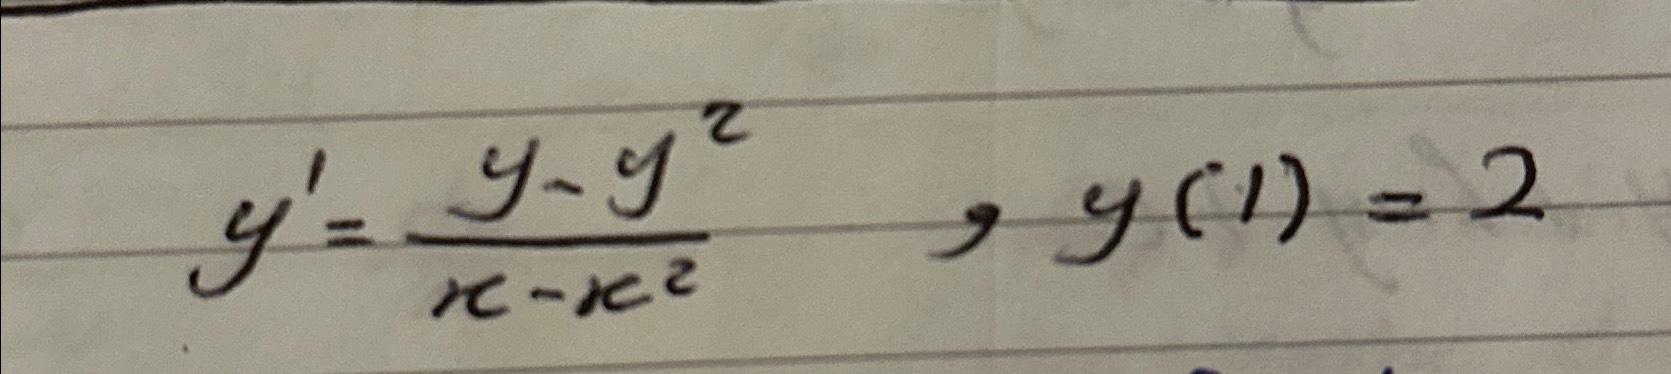 y' = \frac{y - y^2}{x - x^2} , y(1) = 2